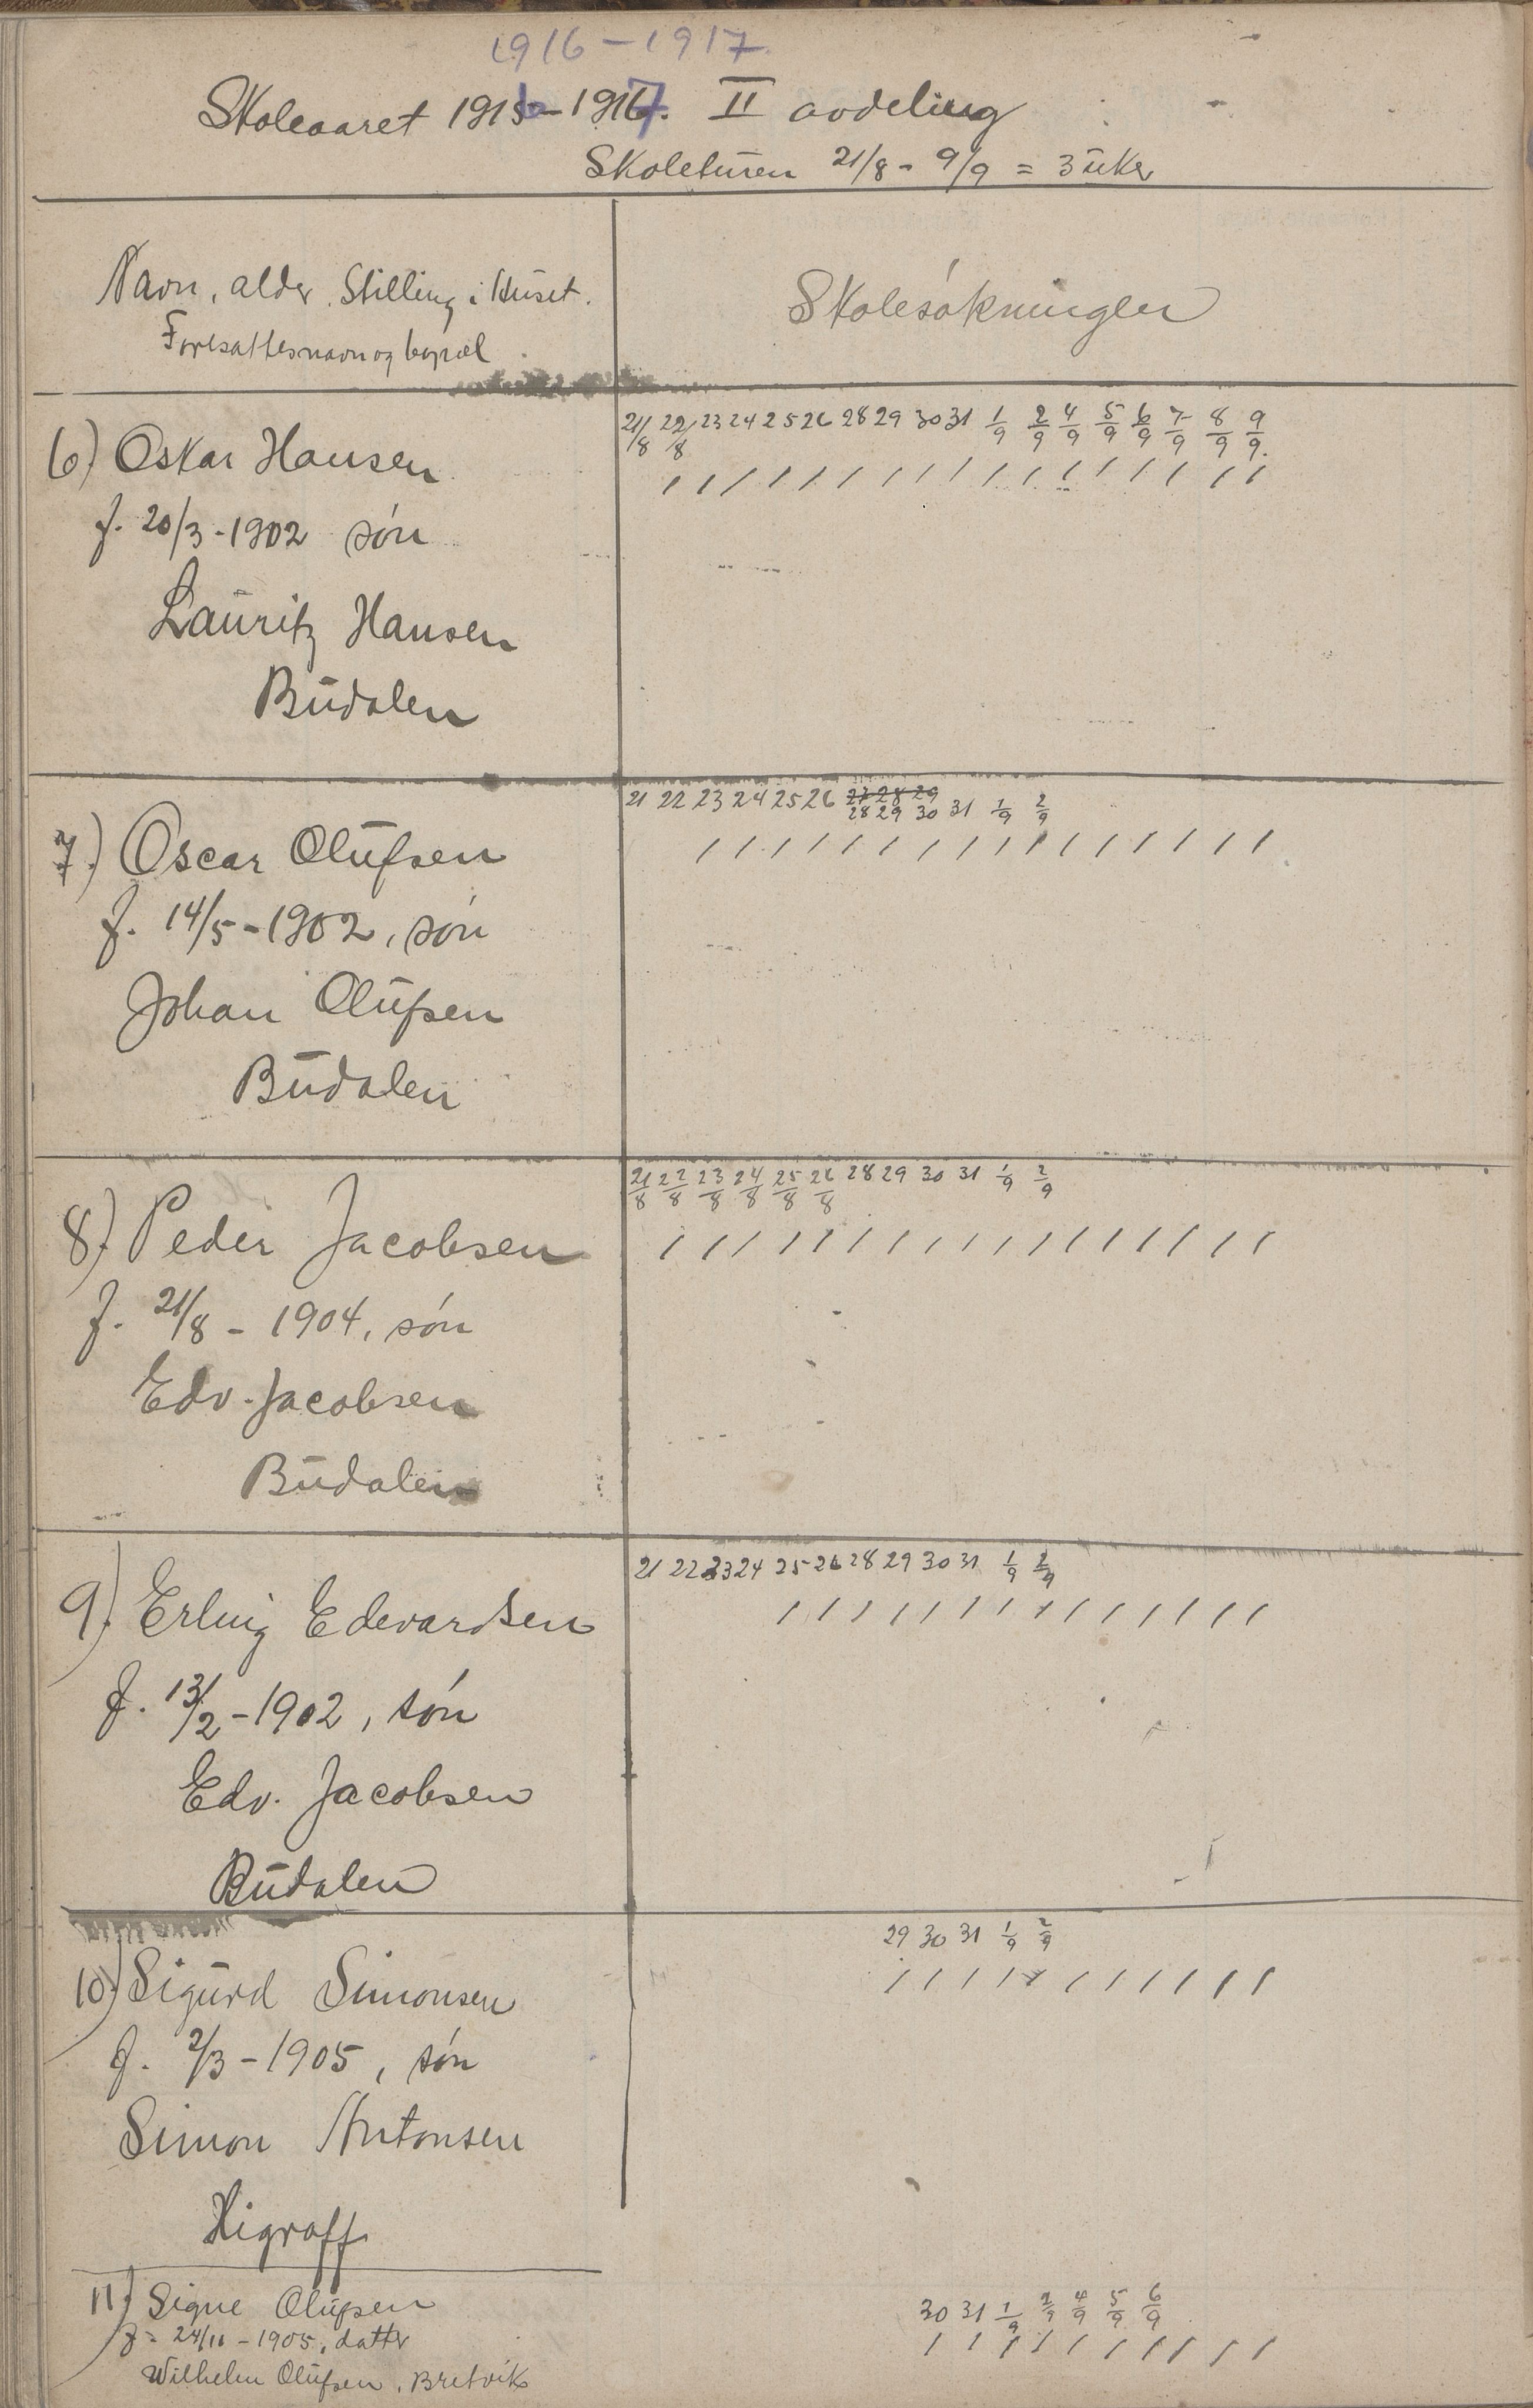 1916-1917.
Skoleaaret 1916-1917. II avdeling
Skoleturen 21/8 - 9/9 = 3 uker
Navn, alder, Stilling i Huset.
Foresattes navn og bopæl
Skolesøkningen
21/8 22/8 23 24 25 26 28 29 30 31 1/9 2/9 4/9 5/9 6/9 7/9 8/9 9/9.
6) Oskar Hansen / / / / / / / / / / / / / / / / /
f. 20/3-1902 søn
Lauritz Hansen
Budalen
21 22 23 24 25 26 27 28 29
28 29 30 31 1/9 2/9
7.) Oscar Olufsen / / / / / / / / / / / / / / / /
f. 14/5-1902, søn
Johan Olufsen
Budalen
21/8 22/8 23/8 24/8 25/8 26/8 28 29 30 31 1/9 2/9
8) Peder Jacobsen / / / / / / / / / / / / / / / / /
f. 21/8 - 1904, søn
Edv. Jacobsen
Budalen
21 22 23 24 25 26 28 29 30 31 1/9 2/9
9). Erling Edevardsen / / / / / / / / / / / / / /
f. 13/2-1902, søn
Edv. Jacobsen
Budalen
29 30 31 1/9 2/9
10) Sigurd Simonsen / / / / / / / / / / /
f. 2/3-1905, søn
Simon Antonsen
Higraff
30 31 1/9 2/9 4/9 5/9 6/9
11) Signe Olufsen
f= 24/11-1905, datter / / / / / / / / / /
Wilhelm Olufsen, Bretvik